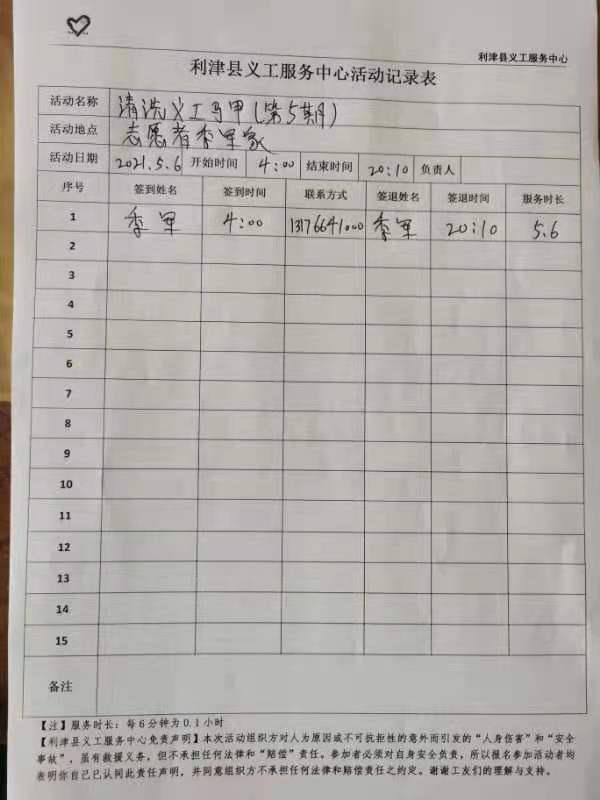 利津县义工服务中心
利津县义工服务中心活动记录表
活动名称 清洗义工马甲(第5期)
活动地点 志愿者李军家
活动日期 2021.5.6 开始时间 4:00 结束时间 20:10 负责人
序号 签到姓名 签到时间 联系方式 签退姓名 签退时间 服务时长
1 李军 4:00 13176641000 李军 20:10 5.6
2
3
4
5
6
7
8
9
10
11
12
13
14
15
备注
【注】服务时长：每6分钟为0.1小时
【利津县义工服务中心免责声明】本次活动组织方对人为原因或不可抗拒性的意外而引发的“人身伤害”和“安全
事故”，虽有救援义务，但不承担任何法律和“赔偿”责任。参加者必须对自身安全负责，所以报名参加活动者均
表明你自己已认同此责任声明，并同意组织方不承担任何法律和赔偿责任之约定。谢谢工友们的理解与支持。